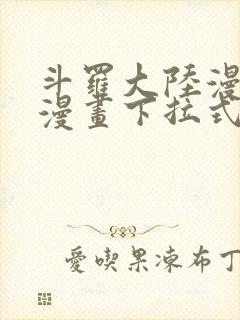 斗羅大陸漫
漫畫下拉式
愛喫果凍布丁